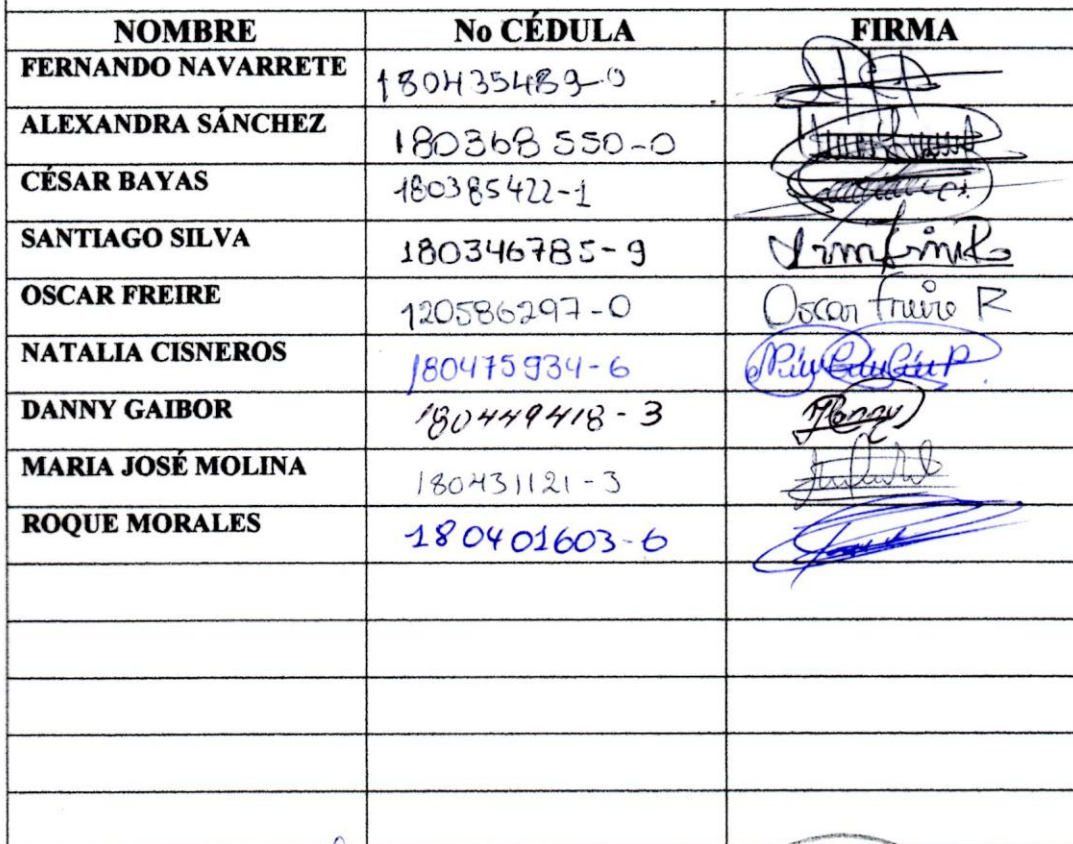 NOMBRE No CÉDULA FIRMA
FERNANDO NAVARRETE 180435489-0
ALEXANDRA SÁNCHEZ 180368550-0
CÉSAR BAYAS 180385422-1
SANTIAGO SILVA 180346785-9
OSCAR FREIRE 120586297-0 Oscar Freire R
NATALIA CISNEROS 180475934-6
DANNY GAIBOR 180449418-3
MARIA JOSÉ MOLINA 180431121-3
ROQUE MORALES 180401603-6